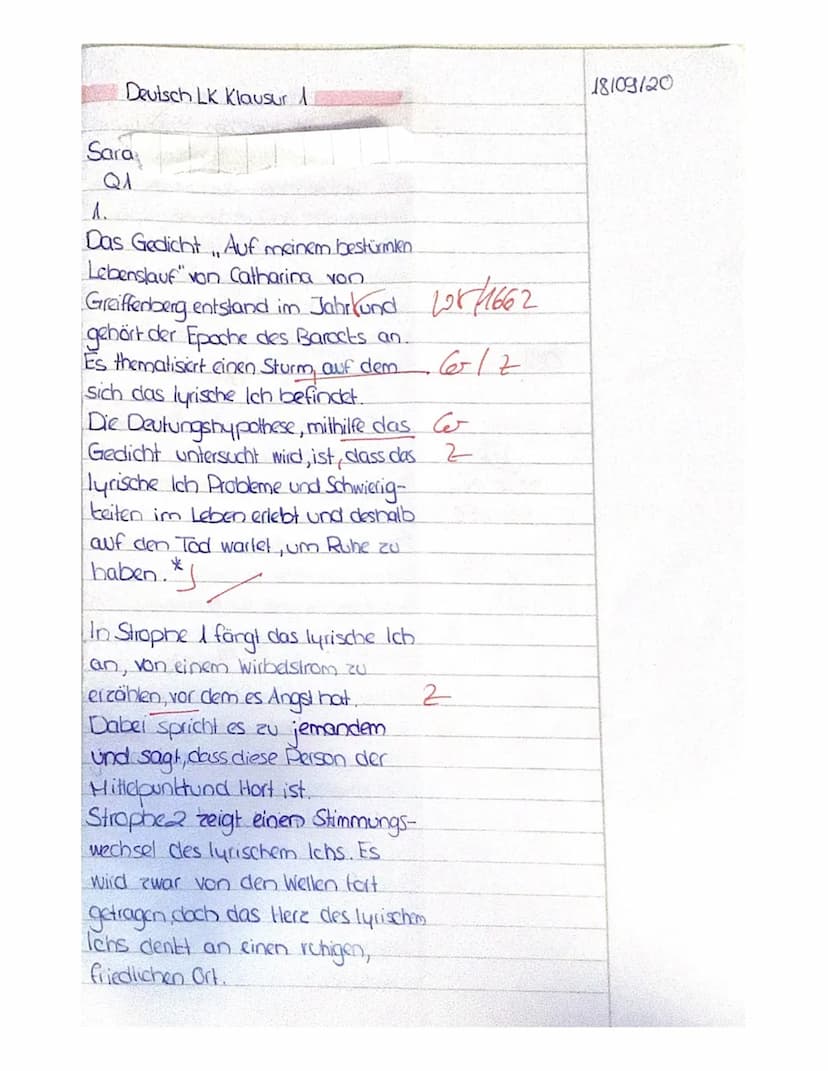 Deutsch LK Klausur 1
18/09/20
Sara
Q1
1.
Das Gedicht „Auf meinem bestürmten
Lebenslauf" von Catharina von
Greiffenberg entstand im Jahr und
1662
gehört der Epoche des Barocks an.
Es thematisiert einen Sturm, auf dem
Gr / Z
sich das lyrische Ich befindet.
Die Deutungshypothese, mithilfe das
Gr
Gedicht untersucht wird, ist, dass das
Z
lyrische Ich Probleme und Schwierig-
keiten im Leben erlebt und deshalb
auf den Tod wartet, um Ruhe zu
haben.*
In Strophe 1 fängt das lyrische Ich
an, von einem Wirbelstrom zu
erzählen, vor dem es Angst hat.
Z
Dabei spricht es zu jemandem
und sagt, dass diese Person der
Mittelpunkt und Hort ist.
Strophe 2 zeigt einen Stimmungs-
wechsel des lyrischem Ichs. Es
wird zwar von den Wellen fort
getragen, doch das Herz des lyrischen
Ichs denkt an einen ruhigen,
friedlichen Ort.